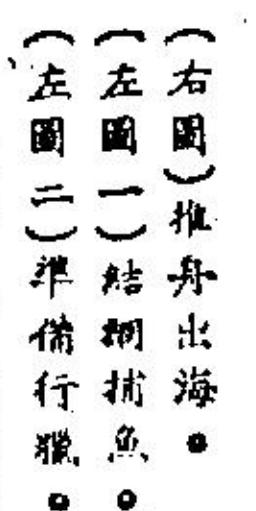 （右圖）推舟出海。
（左圖一）結網捕魚。
（左圖二）準備行獵。